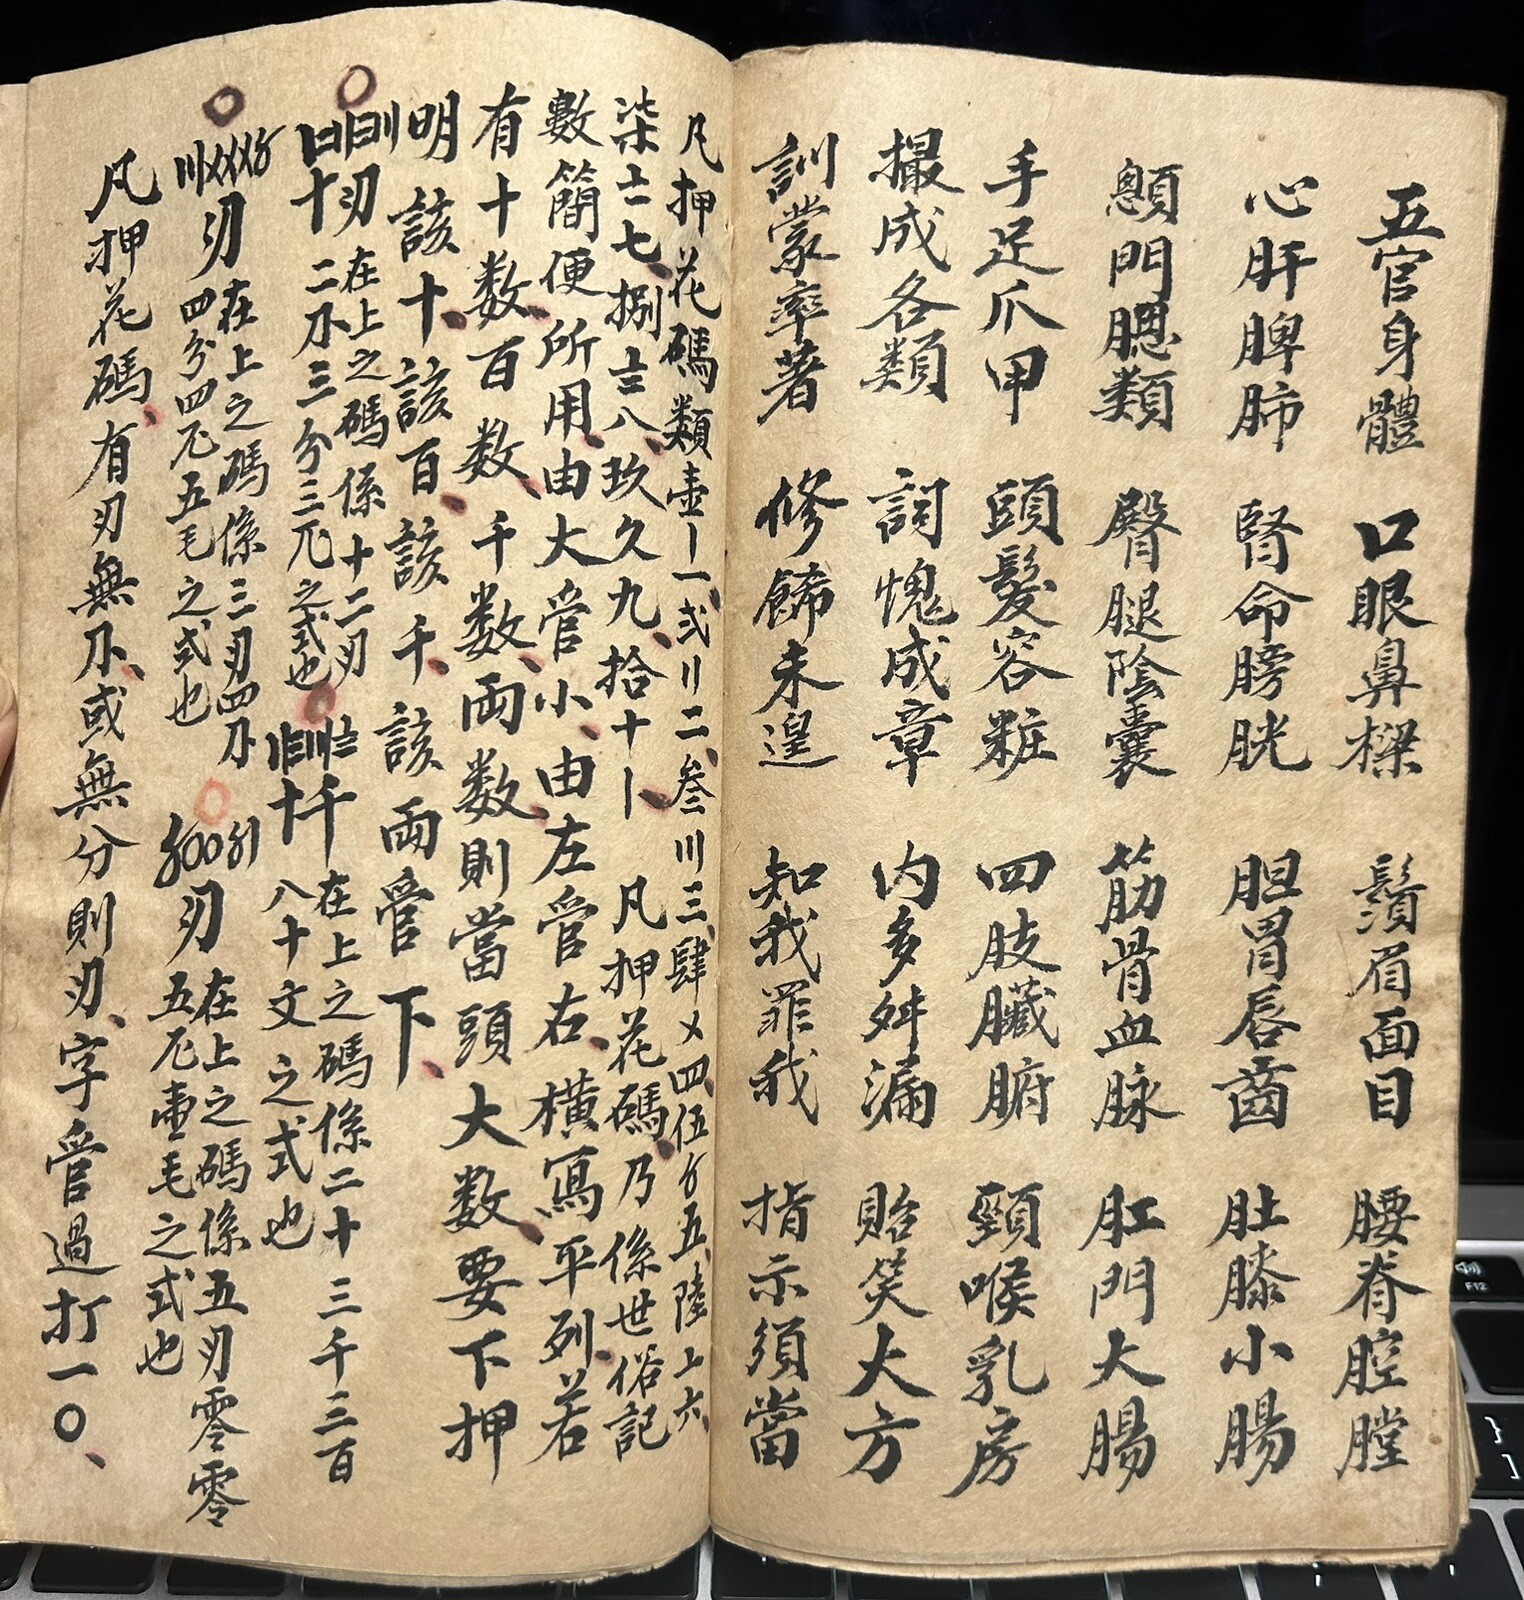 五官身體 口眼鼻樑 鬚眉面目 腰脊腔膛
心肝脾肺 腎命膀胱 胆胃唇齒 肚膝小腸
顖門腮類 臀腿陰囊 筋骨血脉 肛門大腸
手足爪甲 頭髮容粧 四肢臟腑 頸喉乳房
撮成各類 詞愧成章 内多舛漏 貽笑大方
訓蒙率著 修餙未遑 知我罪我 指示須當
凡押花碼類壹〡一、弍〢二、叁〣三、肆〤四、伍〥五、陸〦六、
柒〧七、捌〨八、玖〩九、拾十〡、 凡押花碼、乃係世俗記
數簡便所用、由大管小、由左管右、橫寫平列、若
有十数、百数、千数、兩数、則當頭大数、要下押
明 該十、該百、該千、該兩管下、
刄 在上之碼係十二刄
十 二 三分三 之式也
千 在上之碼係二十三千三百
十 八十文之式也
〣〤〤〤〥
刄 在上之碼係三刄四
四分四 五毛之式也
〥〇〇〥〡
刄 在上之碼係五刄零零
五 壹毛之式也
凡押花碼、有刄無 、或無分則刄、字管過打一〇、